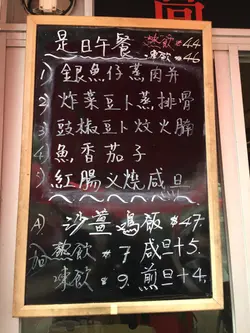 是日午餐 熱飲 $44
凍飲 $46
1) 銀魚仔蒸肉弁
2) 炸菜豆卜蒸排骨
3) 豉椒豆卜炆火腩
4) 魚香茄子
5) 紅腸义燒咸旦
A) 沙薑鷄飯 $47.
加 熱飲 $7. 咸旦+5.
凍飲 $9. 煎旦+4.